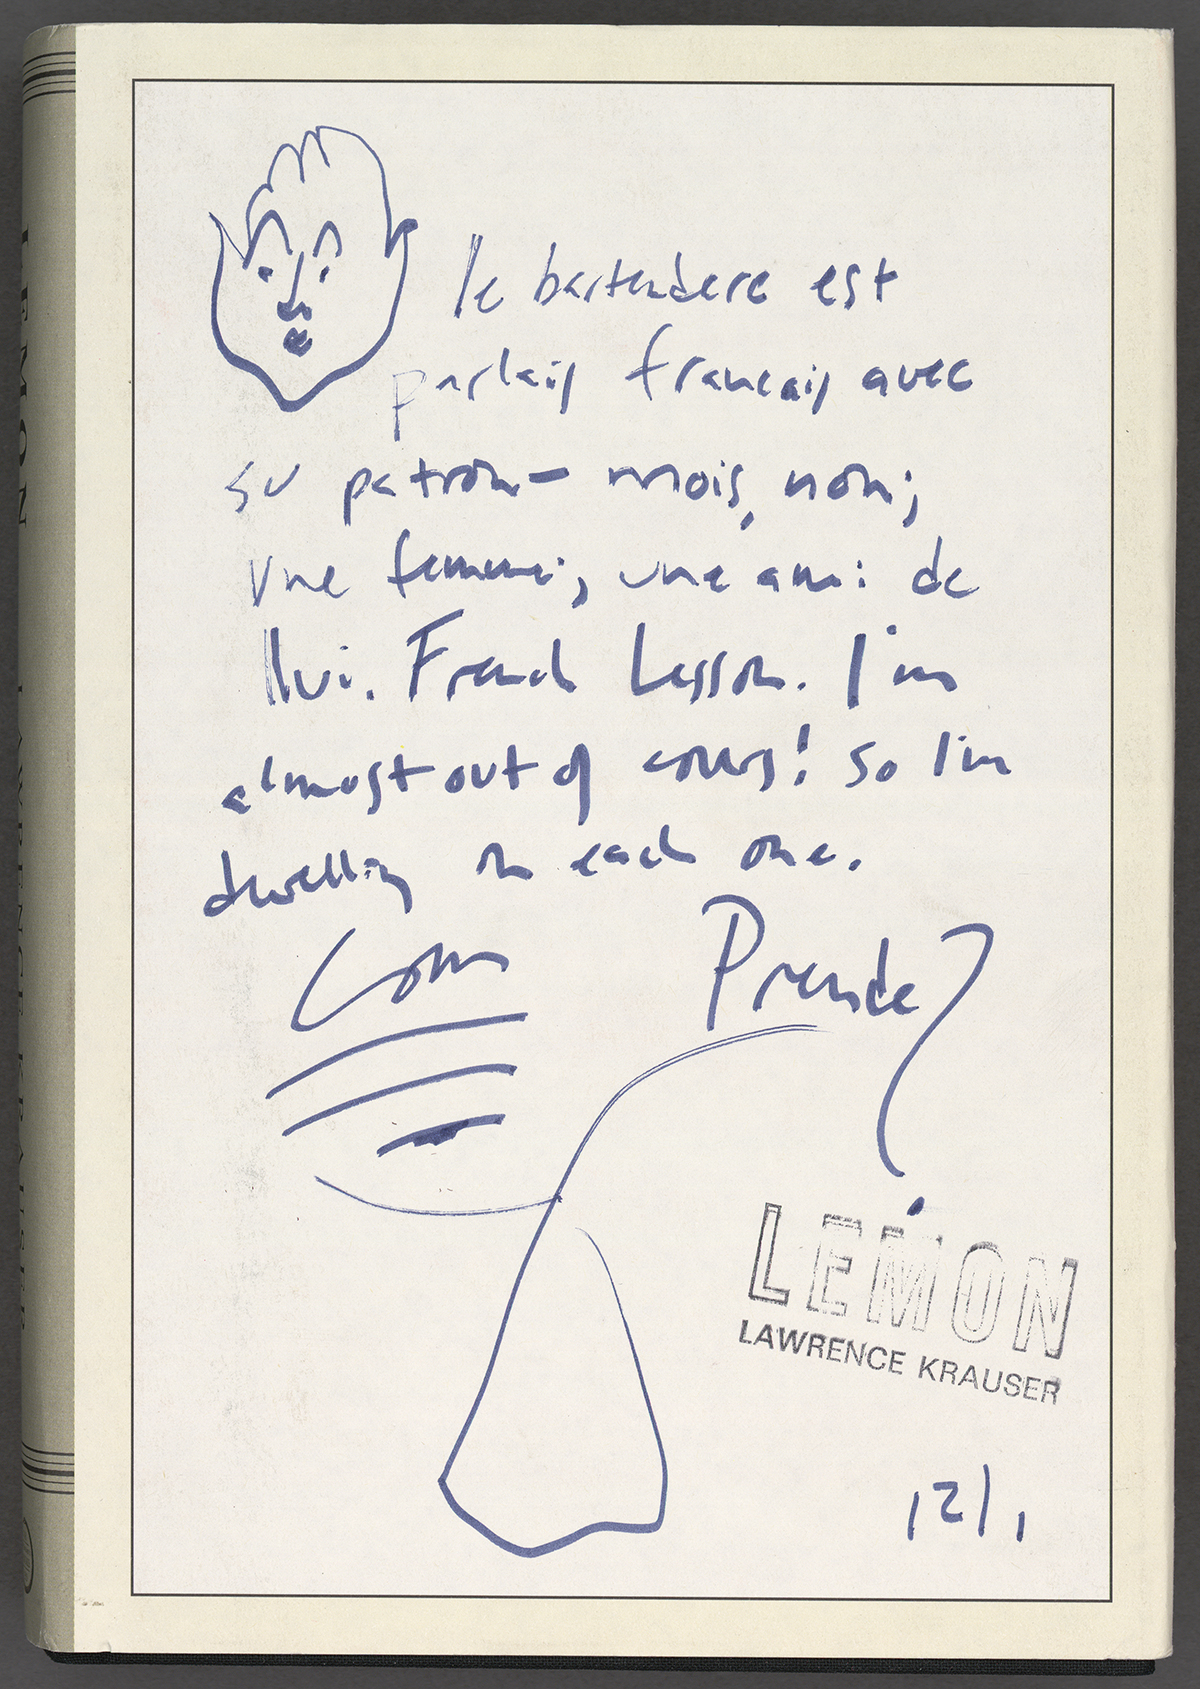 le bartendere est
parlais francais avec
su patron- mois, non;
une femme, une ami de
llui. French Lesson. I'm
almost out of covers! So I'm
dwelling on each one.
Com Prende?
LEMON
LAWRENCE KRAUSER
12/1
LEMON LAWRENCE KRAUSER